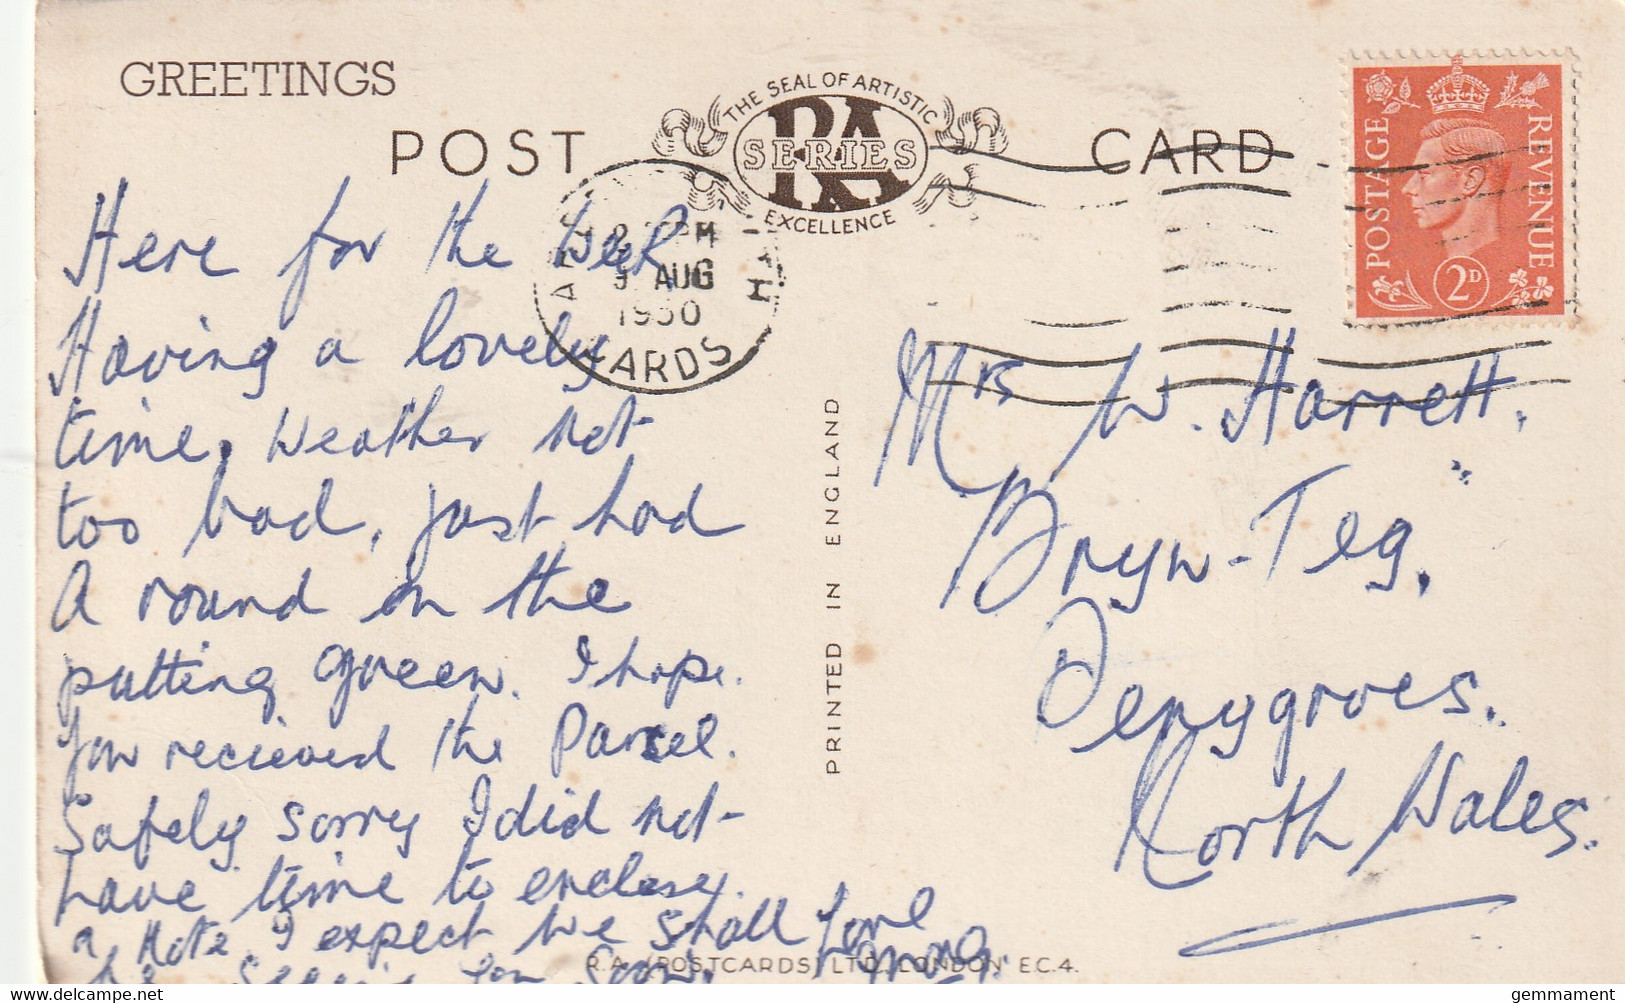 GREETINGS
POST CARD
THE SEAL OF ARTISTIC
RA
SERIES
EXCELLENCE
PM
9 AUG
1950
CARDS
POSTAGE
REVENUE
2D
Here for the Week
Having a lovely
time. Weather not
too bad, just had
A round on the
putting green. I hope.
you recieved the Parcel.
Safely sorry I did not
have time to enclose.
a Note I expect we shall
be Seeing you Soon.
Love
Mrs W. Harrett.
"Bryn-Teg."
Penygroes.
North Wales.
PRINTED IN ENGLAND
R.A. (POSTCARDS) LTD. LONDON E.C.4.
gemmament